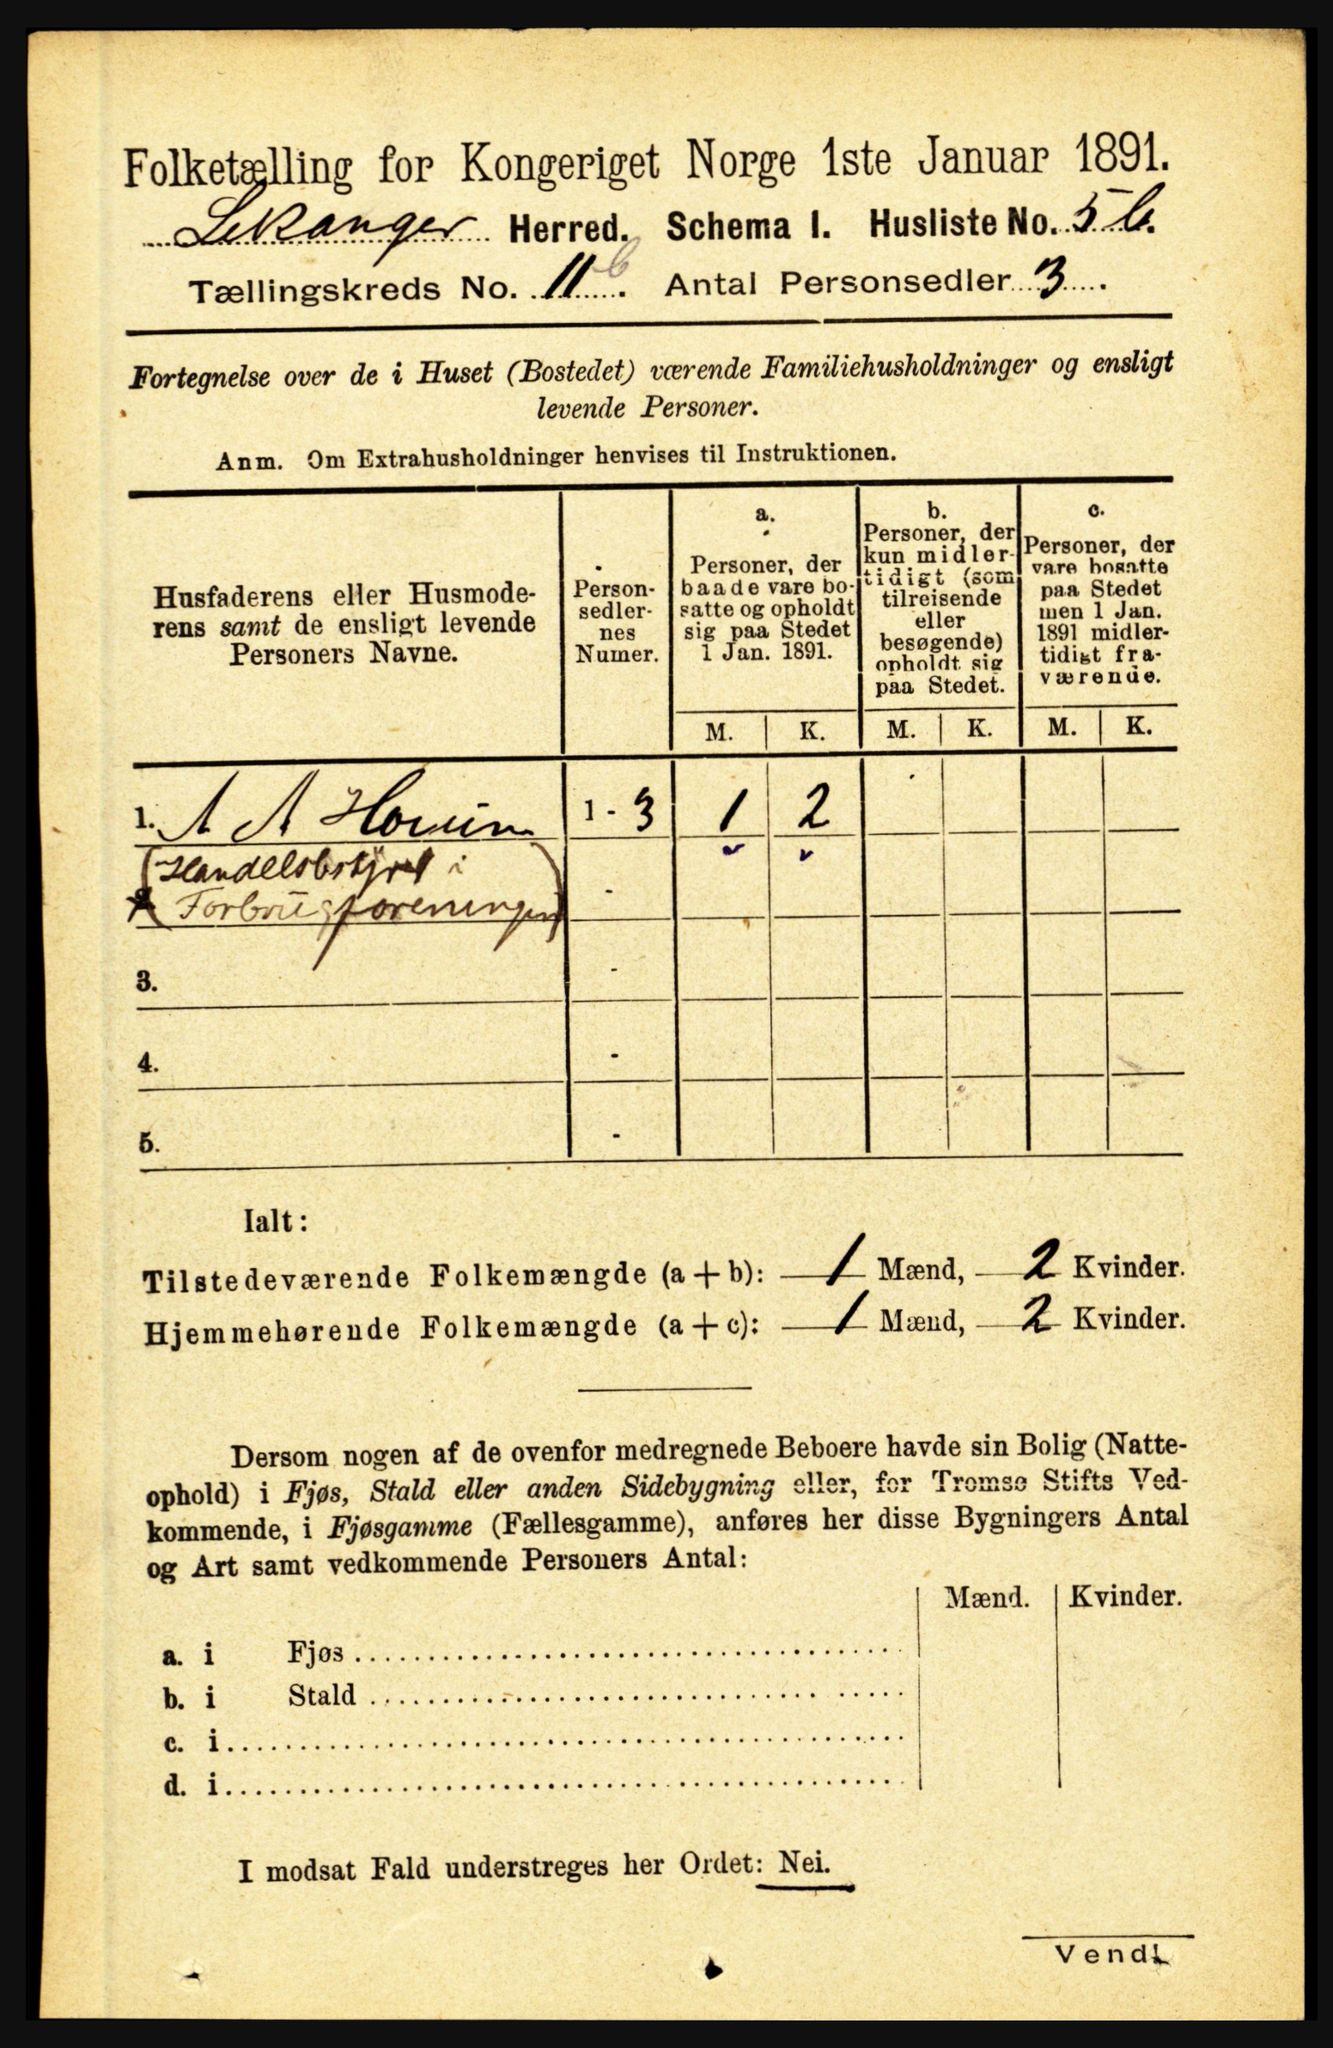 Folketælling for Kongeriget Norge 1ste Januar 1891.
Lekanger Herred. Schema I. Husliste No. 5 b.
Tællingskreds No. 11 b. Antal Personsedler 3.
Fortegnelse over de i Huset (Bostedet) værende Familiehusholdninger og ensligt
levende Personer.
Anm. Om Extrahusholdninger henvises til Instruktionen.
Husfaderens eller Husmode-
rens samt de ensligt levende
Personers Navne.
Person-
sedler-
nes
Numer.
a.
Personer, der
baade vare bo-
satte og opholdt
sig paa Stedet
1 Jan. 1891.
b.
Personer, der
kun midler-
tidigt (som
tilreisende
eller
besøgende)
opholdt sig
paa Stedet.
c.
Personer, der
vare bosatte
paa Stedet
men 1 Jan.
1891 midler-
tidigt fra-
værende.
M. K. M. K. M. K.
1. A A 1 - 3 1 2
(Handelsbstyrer i
Forbrugsforeningen) -
3. -
4. -
5. -
Ialt:
Tilstedeværende Folkemængde (a + b): 1 Mænd, 2 Kvinder.
Hjemmehørende Folkemængde (a + c): 1 Mænd, 2 Kvinder.
Dersom nogen af de ovenfor medregnede Beboere havde sin Bolig (Natte-
ophold) i Fjøs, Stald eller anden Sidebygning eller, for Tromsø Stifts Ved-
kommende, i Fjøsgamme (Fællesgamme), anføres her disse Bygningers Antal
og Art samt vedkommende Personers Antal:
Mænd. Kvinder.
a. i Fjøs
b. i Stald
c. i
d. i
I modsat Fald understreges her Ordet: Nei.
Vend!